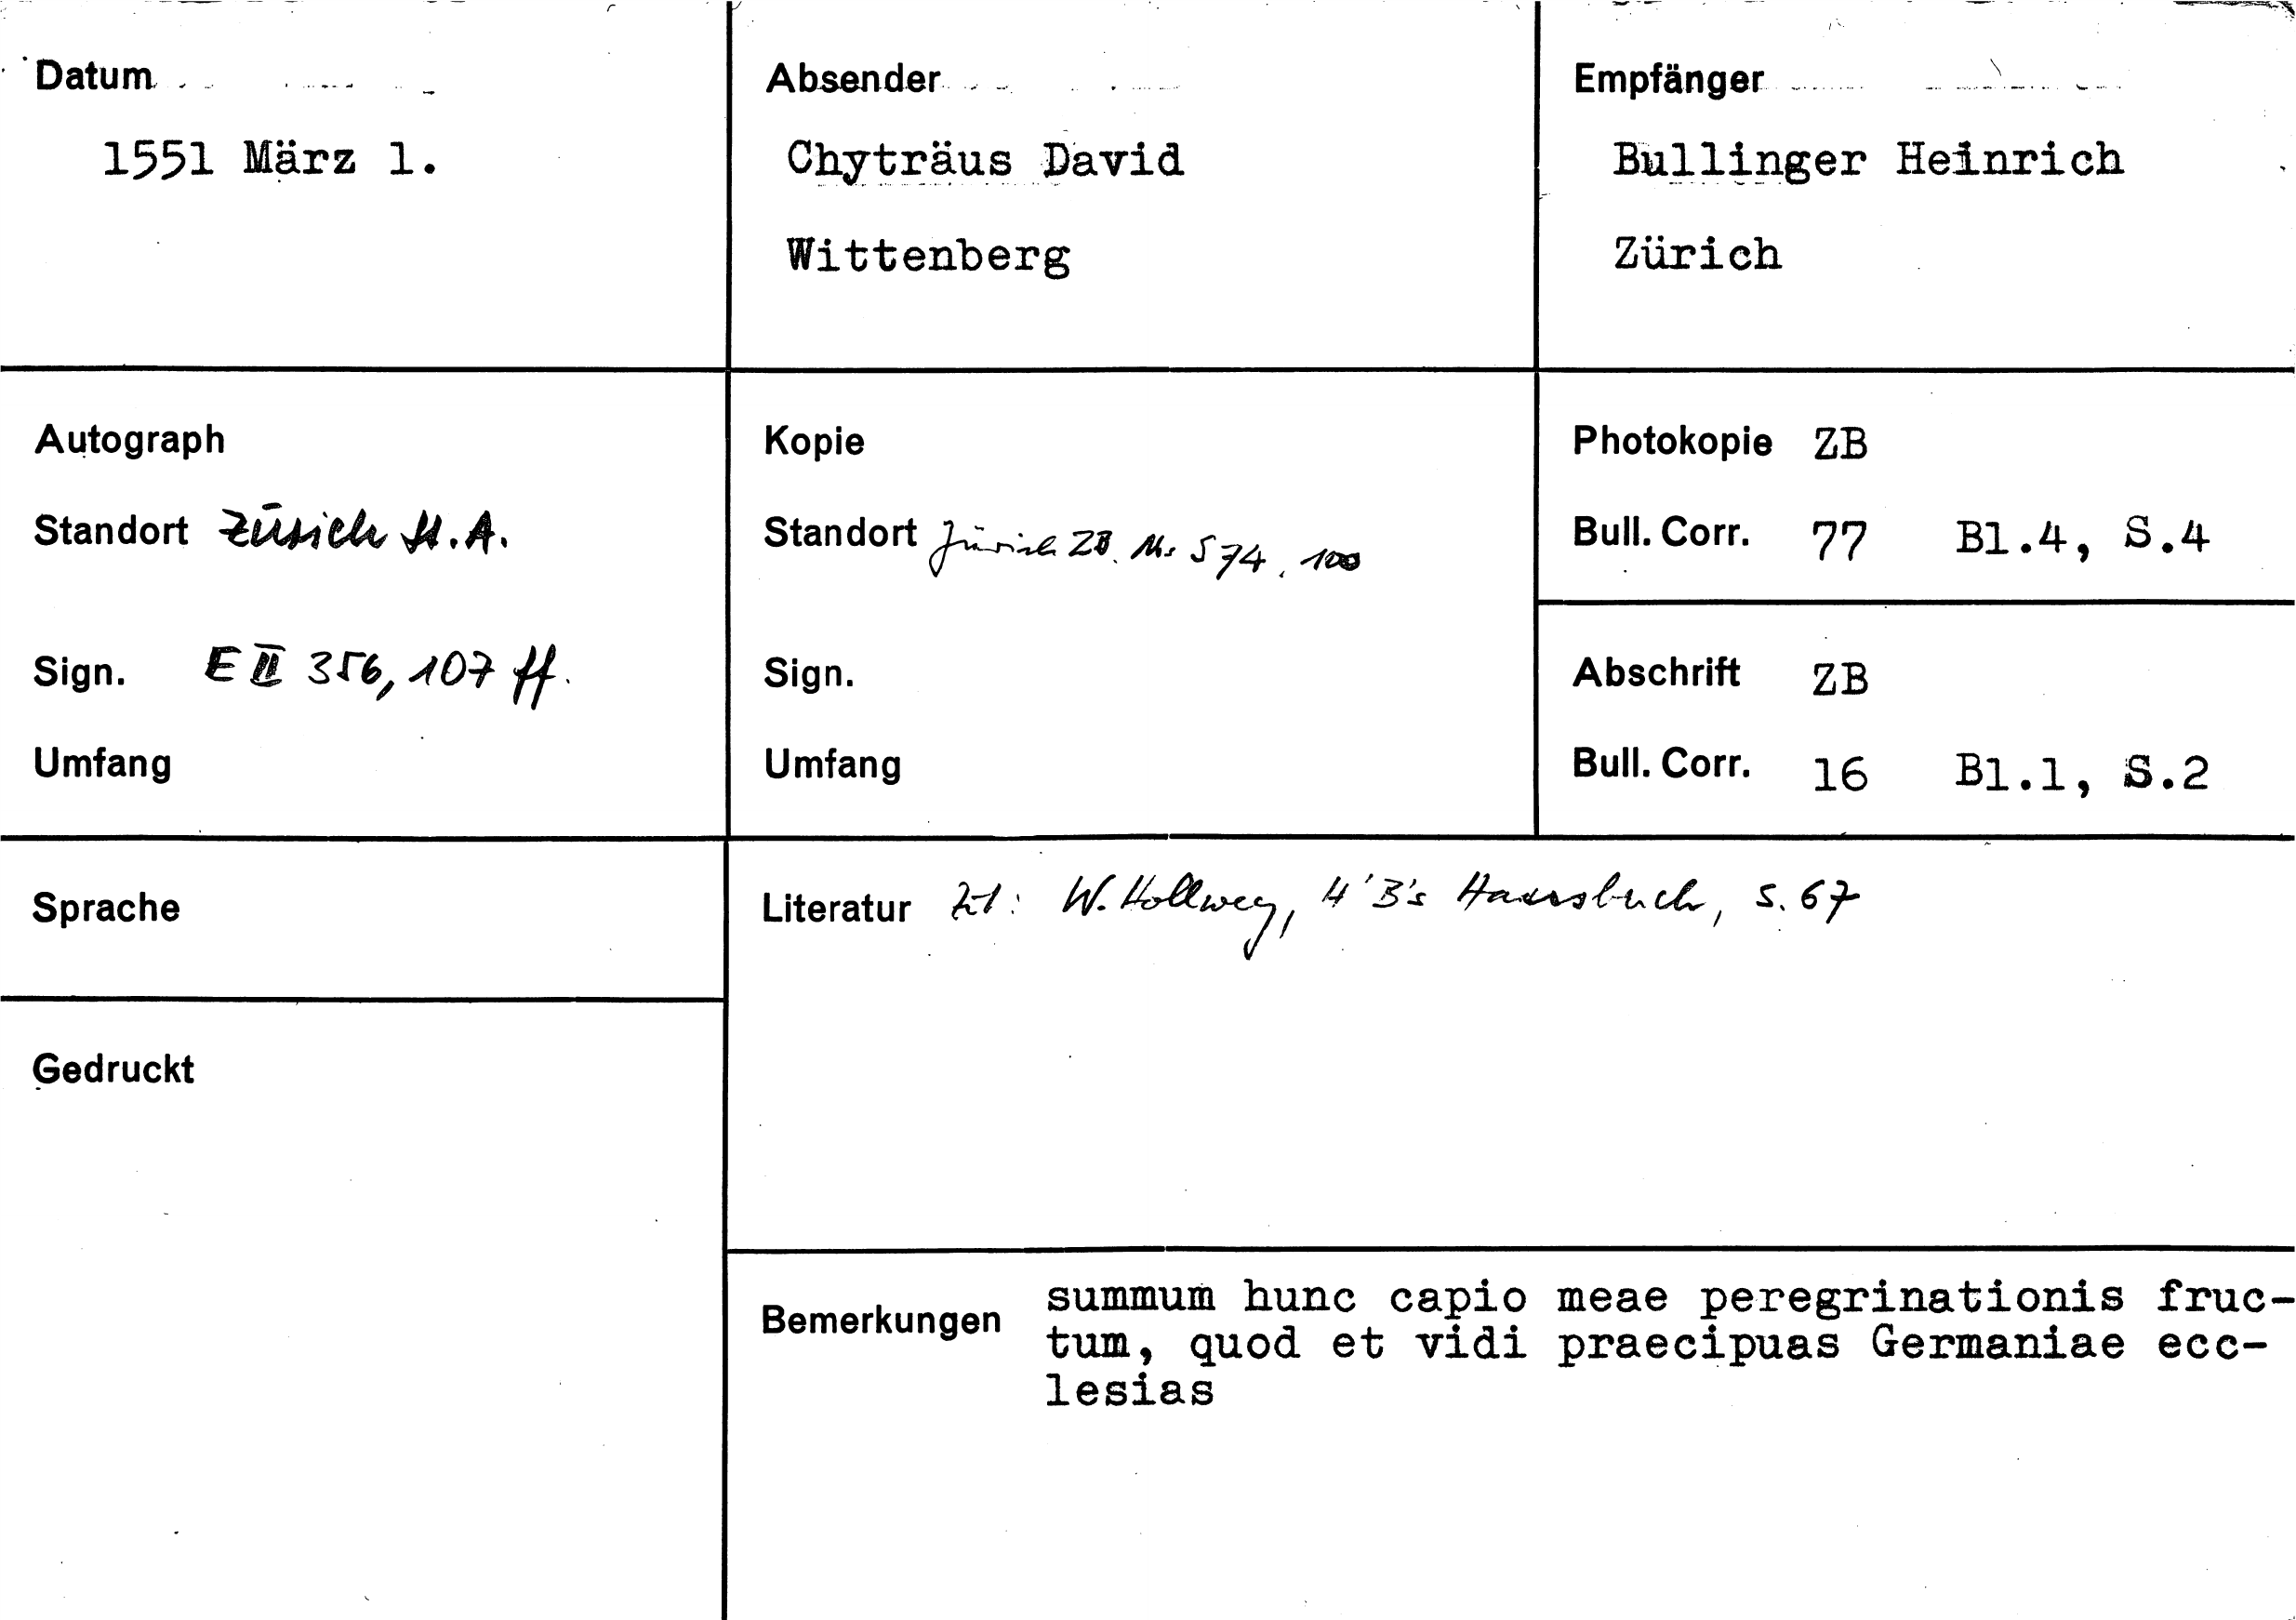 Datum
1551 März 1.
Absender
Chyträus David
Wittenberg
Empfänger
Bullinger Heinrich
Zürich
Autograph
Standort Zürich St.A.
Sign. E II 356, 107 ff.
Umfang
Kopie
Standort Zürich ZB. Ms S 74, 100
Sign.
Umfang
Photokopie ZB
Bull. Corr. 77 Bl.4, S.4
Abschrift ZB
Bull. Corr. 16 Bl.1, S.2
Sprache
Gedruckt
Literatur Zit: W. Hollweg, H'B's Hausbuch, S. 67
Bemerkungen summum hunc capio meae peregrinationis fruc-
tum, quod et vidi praecipuas Germaniae ecc-
lesias